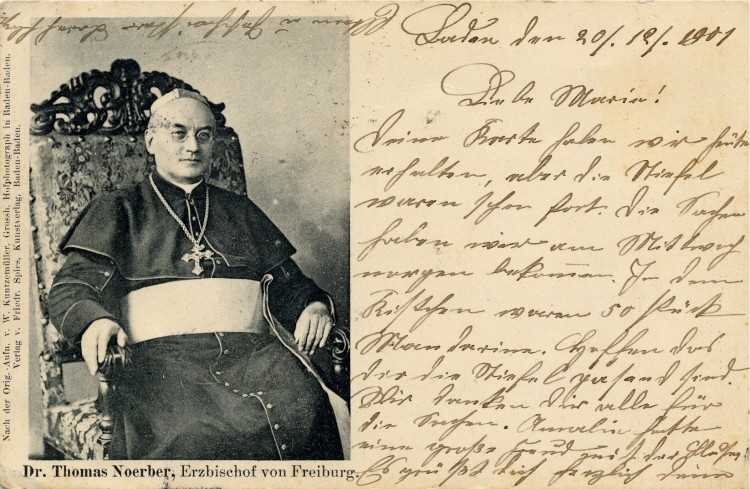 Baden den 20/. 12/. 1901
Liebe Marie!
Deine Karte haben wir heute
erhalten, aber die Stiefel
waren schon fort. Die Sachen
haben wir am Mittwoch
morgen bekommen. In dem
Kistchen waren 50 Stück
Mandarine. Hoffen das
dir die Stiefel pasend sind.
Wir danken dir alle für
die Sachen. Amalia hatte
eine große Freud mit der
Es grüßt dich herzlich deine
Nach der Orig.-Aufn. v. W. Kuntzemüller, Grossh. Hofphotograph in Baden-Baden.
Verlag v. Friedr. Spies, Kunstverlag, Baden-Baden.
Dr. Thomas Noerber, Erzbischof von Freiburg.